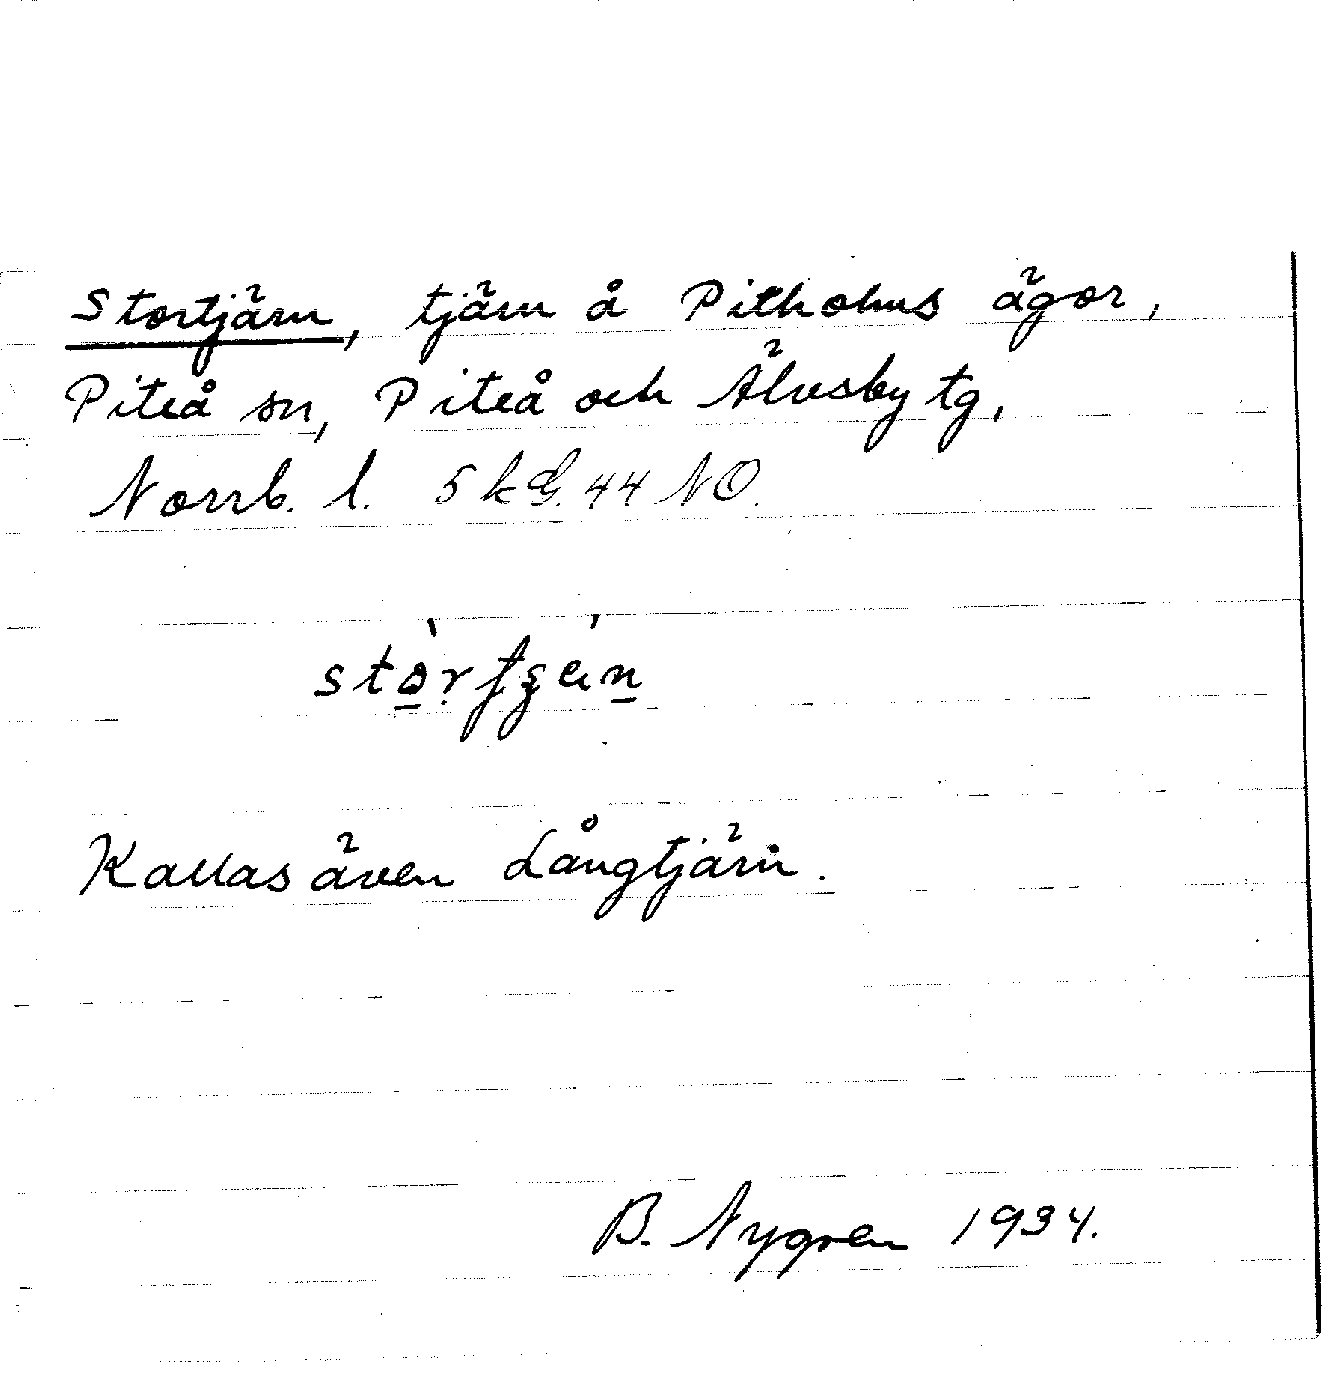 Stortjärn, tjärn å Pitholms ägor,
Piteå sn, Piteå och Älvsby tg,
Norrb. l. 5 k G. 44 NO.
Kallas även Långtjärn.
B. Nygren 1934.